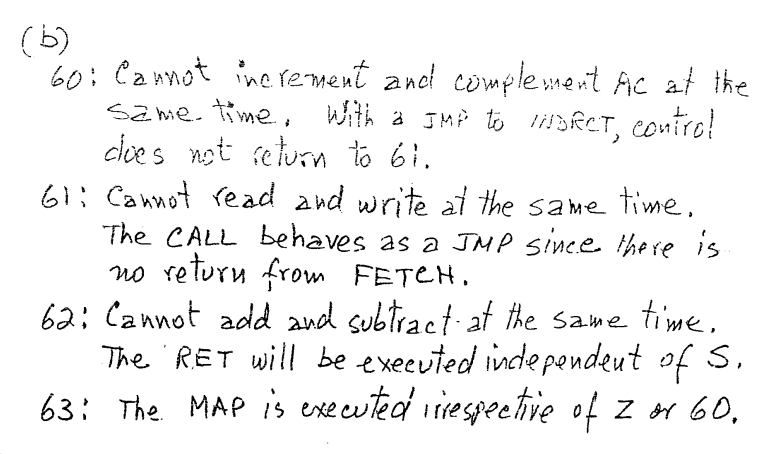 (b)
60: Cannot increment and complement AC at the
same time. With a JMP to INDRCT, control
does not return to 61.
61: Cannot read and write at the same time.
The CALL behaves as a JMP since there is
no return from FETCH.
62: Cannot add and subtract at the same time.
The RET will be executed independent of S.
63: The MAP is executed irrespective of Z or 60.